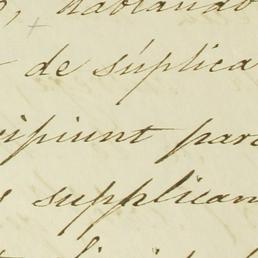 hablando
de súplica
cipiunt para
supplican